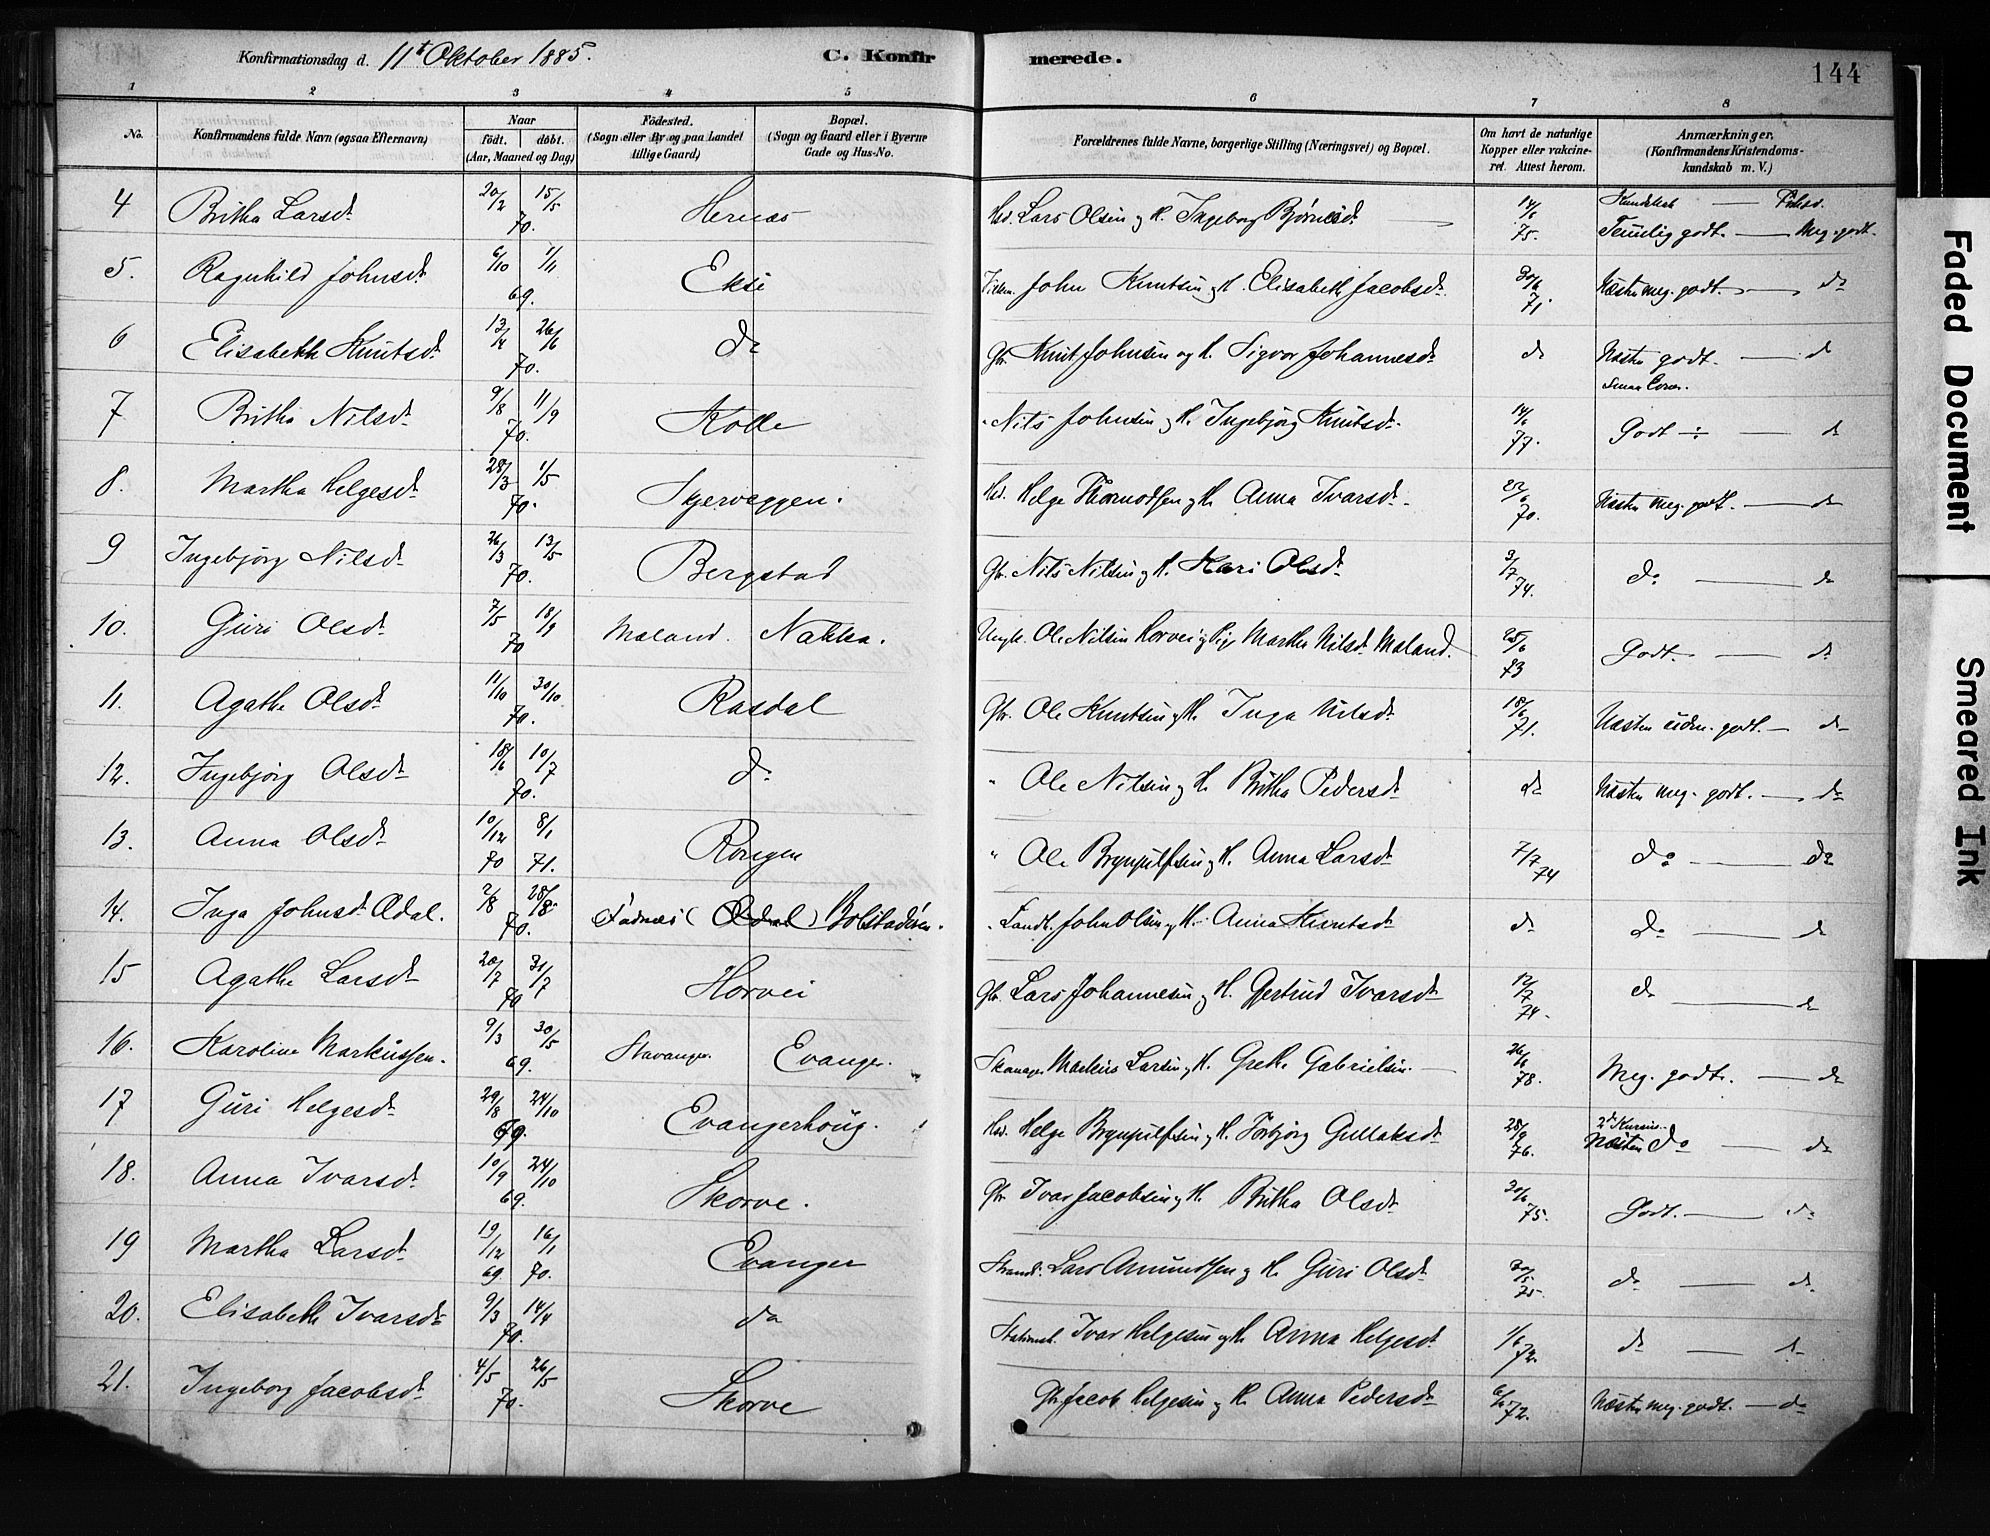 Konfirmationsdag d. 11t Oktober 1885. C. Konfirmerede. 144
1 2 3 4 5 6 7 8
No. Konfirmandens fulde Navn (ogsaa Efternavn) Naar født. døbt. (Aar, Maaned og Dag) Fødested. (Sogn eller By og paa Landet tillige Gaard) Bopæl. (Sogn og Gaard eller i Byerne Gade og Hus-No. Forældrenes fulde Navne, borgerlige Stilling (Næringsvei) og Bopæl. Om havt de naturlige Kopper eller vaccineret. Attest herom. Anmærkninger. (Konfirmandens Kristendomskundskab m. V.)
4 Britha Larsdt. 20/2 15/5 70. Hernes Hsd. Lars Olsen og H. Ingeborg Bjørnesdt. 14/6 75. Kundskab — Forhold. Temelig godt. — Meg. godt.
5. Ragnhild Johnsdt. 6/10 1/11 69. Ekse John Knutsen og H. Elisabeth Jacobsdt. 30/6 71. Næsten meg. godt. — do
6 Elisabeth Knutsdt. 13/4 26/6 70. do Gbr. Knut Johnsen og H. Sigvor Johannesdt. do Næsten godt. — do
7 Britha Nilsdt. 9/8 11/9 70. Kolle " Nils Johnsen og H. Ingebjørg Knutsdt. 14/6 77. Godt ÷ — do
8. Martha Helgesdt. 28/3 1/5 70. Skjerveggen. Hsd. Helge Thormodsen og H. Anna Ivarsdt. 23/6 70. Næsten meg. godt. — do
9 Ingebjørg Nilsdt. 26/3 13/5 70. Bergstad Gbr. Nils Nilsen og H. Kari Olsdt. 3/7 74. do — do
10. Guri Olsdt. 7/5 18/9 70 Maland. Nakka. Ungk. Ole Nilsen Horvei og Pige Martha Nilsdt. Maland. 25/6 73 Godt. — do
11. Agatha Olsdt. 11/10 30/10 70. Rasdal Gbr. Ole Knutsen og H. Inga Nilsdt. 18/6 71. Næsten udm. godt. — do
12. Ingebjørg Olsdt. 18/6 10/7 70. do " Ole Nilsen og H. Britha Pedersdt. do Næsten meg. godt. — do
13. Anna Olsdt. 10/12 70 8/1 71. Rongen " Ole Brynjulfsen og H. Anna Larsdt. 7/7 74 do — do
14. Inga Johnsdt. Ædal. 2/8 28/8 70. Fadnes (Ædal) Bolstadøren. Landh. John Olsen og H. Anna Knutsdt. do do — do
15 Agatha Larsdt. 20/7 31/7 70 Horvei Gbr. Lars Johannesen og H. Gjertrud Ivarsdt. 12/7 74. do — do
16. Karoline Markussen. 9/3 30/5 69. Stavanger. Evanger. Skomager Markus Larsen og H. Grethe Gabrielsen. 26/6 78. Meg. godt. — do
17 Guri Helgesdt. 29/8 24/10 69. Evangerhoug. Hsd. Helge Brynjulfsen og H. Torbjørg Gullaksdt. 28/9 76. Næsten do — do
18. Anna Ivarsdt. 10/9 24/10 69. Skorve. Gbr. Ivar Jacobsen og H. Britha Olsdt. 30/6 75. Godt. — do
19 Martha Larsdt. 19/12 69 16/1 70. Evanger Strands. Lars Amundsen og H. Guri Olsdt. do — do
20. Elisabeth Ivarsdt. 9/3 14/4 70. do Ivar Helgesen og H. Anna Helgesdt. 1/6 72. do — do
21. Ingeborg Jacobsdt. 4/5 26/5 70. Skorve Gbr. Jacob Helgesen og H. Anna Pedersdt. 72. Næsten meg. godt. — do
Faded Document
Smeared Ink